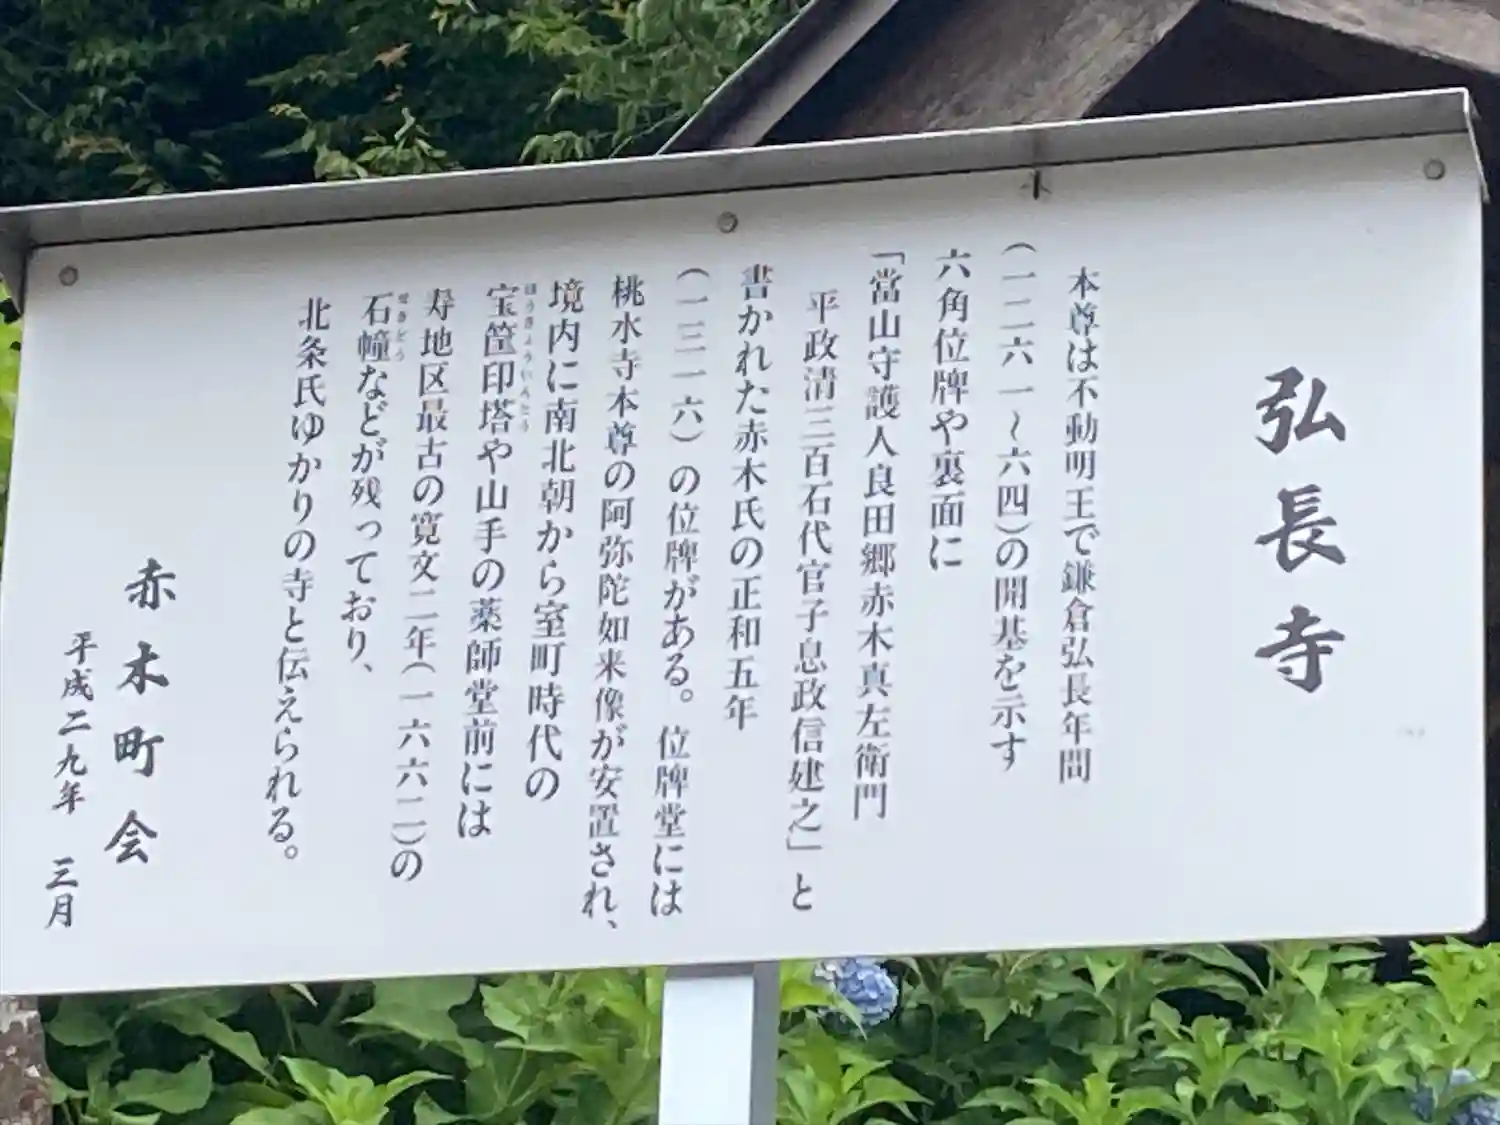 弘長寺
本尊は不動明王で鎌倉弘長年間
（一二六一～六四）の開基を示す
六角位牌や裏面に
「當山守護人良田郷赤木真左衛門
平政清三百石代官子息政信建之」と
書かれた赤木氏の正和五年
（一三一六）の位牌がある。位牌堂には
桃水寺本尊の阿弥陀如来像が安置され、
境内に南北朝から室町時代の
宝篋印塔や山手の薬師堂前には
ほうきょういんとう
寿地区最古の寛文二年（一六六二）の
石幢などが残っており、
せきどう
北条氏ゆかりの寺と伝えられる。
赤木町会
平成二九年　三月